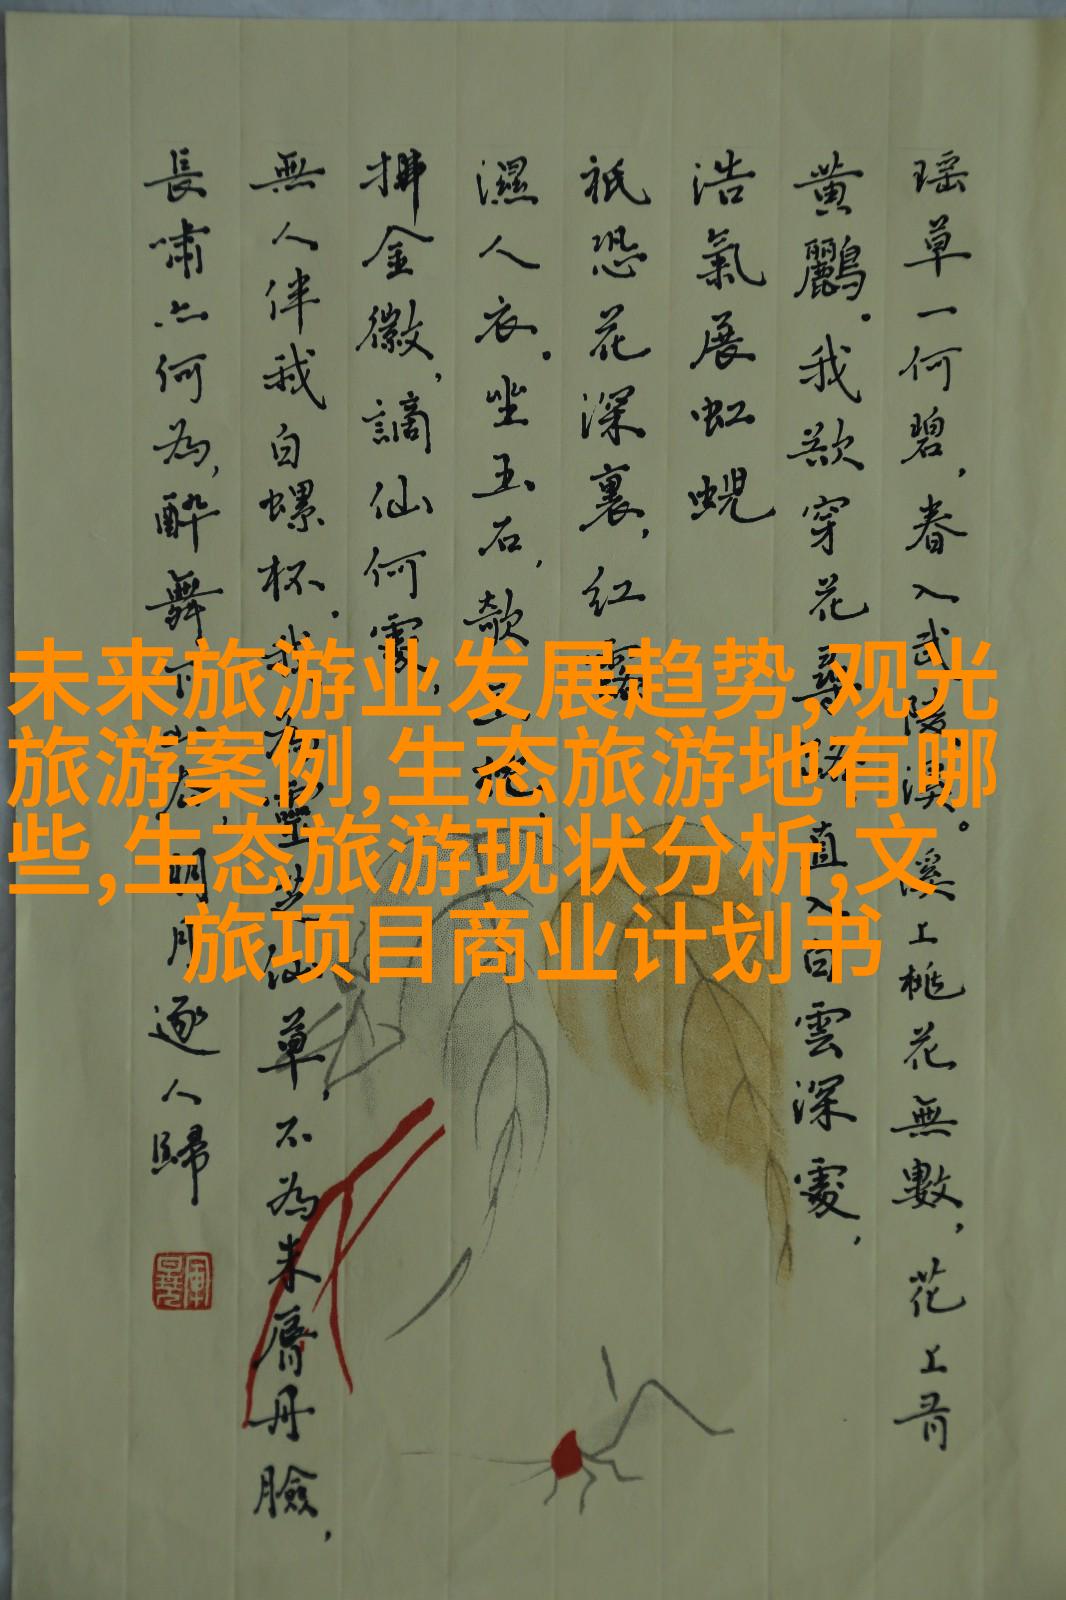 瑶草一何碧，春入武陵溪。溪上桃花無數，花上有
黄鸝。我欲穿花尋路，直入白雲深處，
浩氣展虹蜺
祇恐花深裏，红露
濕人衣。坐玉石，欹玉枕，
拂金徽，謫仙何處，
無人伴我白螺杯。我為靈芝仙草，不為朱脣丹臉，
長嘯亦何為，醉舞下山去，明月逐人歸
未来旅游业发展趋势,观光
旅游案例,生态旅游地有哪
些,生态旅游现状分析,文
旅项目商业计划书